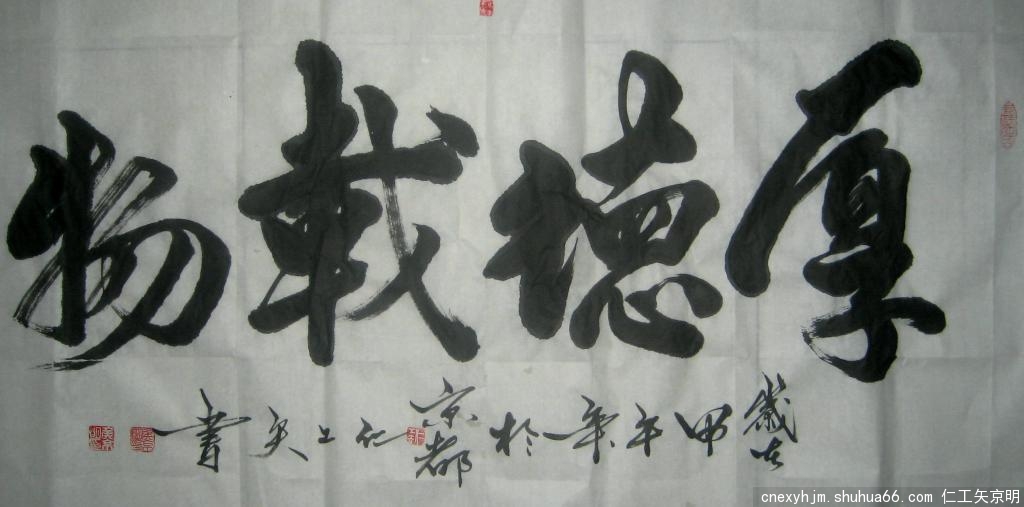 厚德載物
歲在甲午年於京都仁工矢書
cnexyhjm.shuhua66.com 仁工矢京明